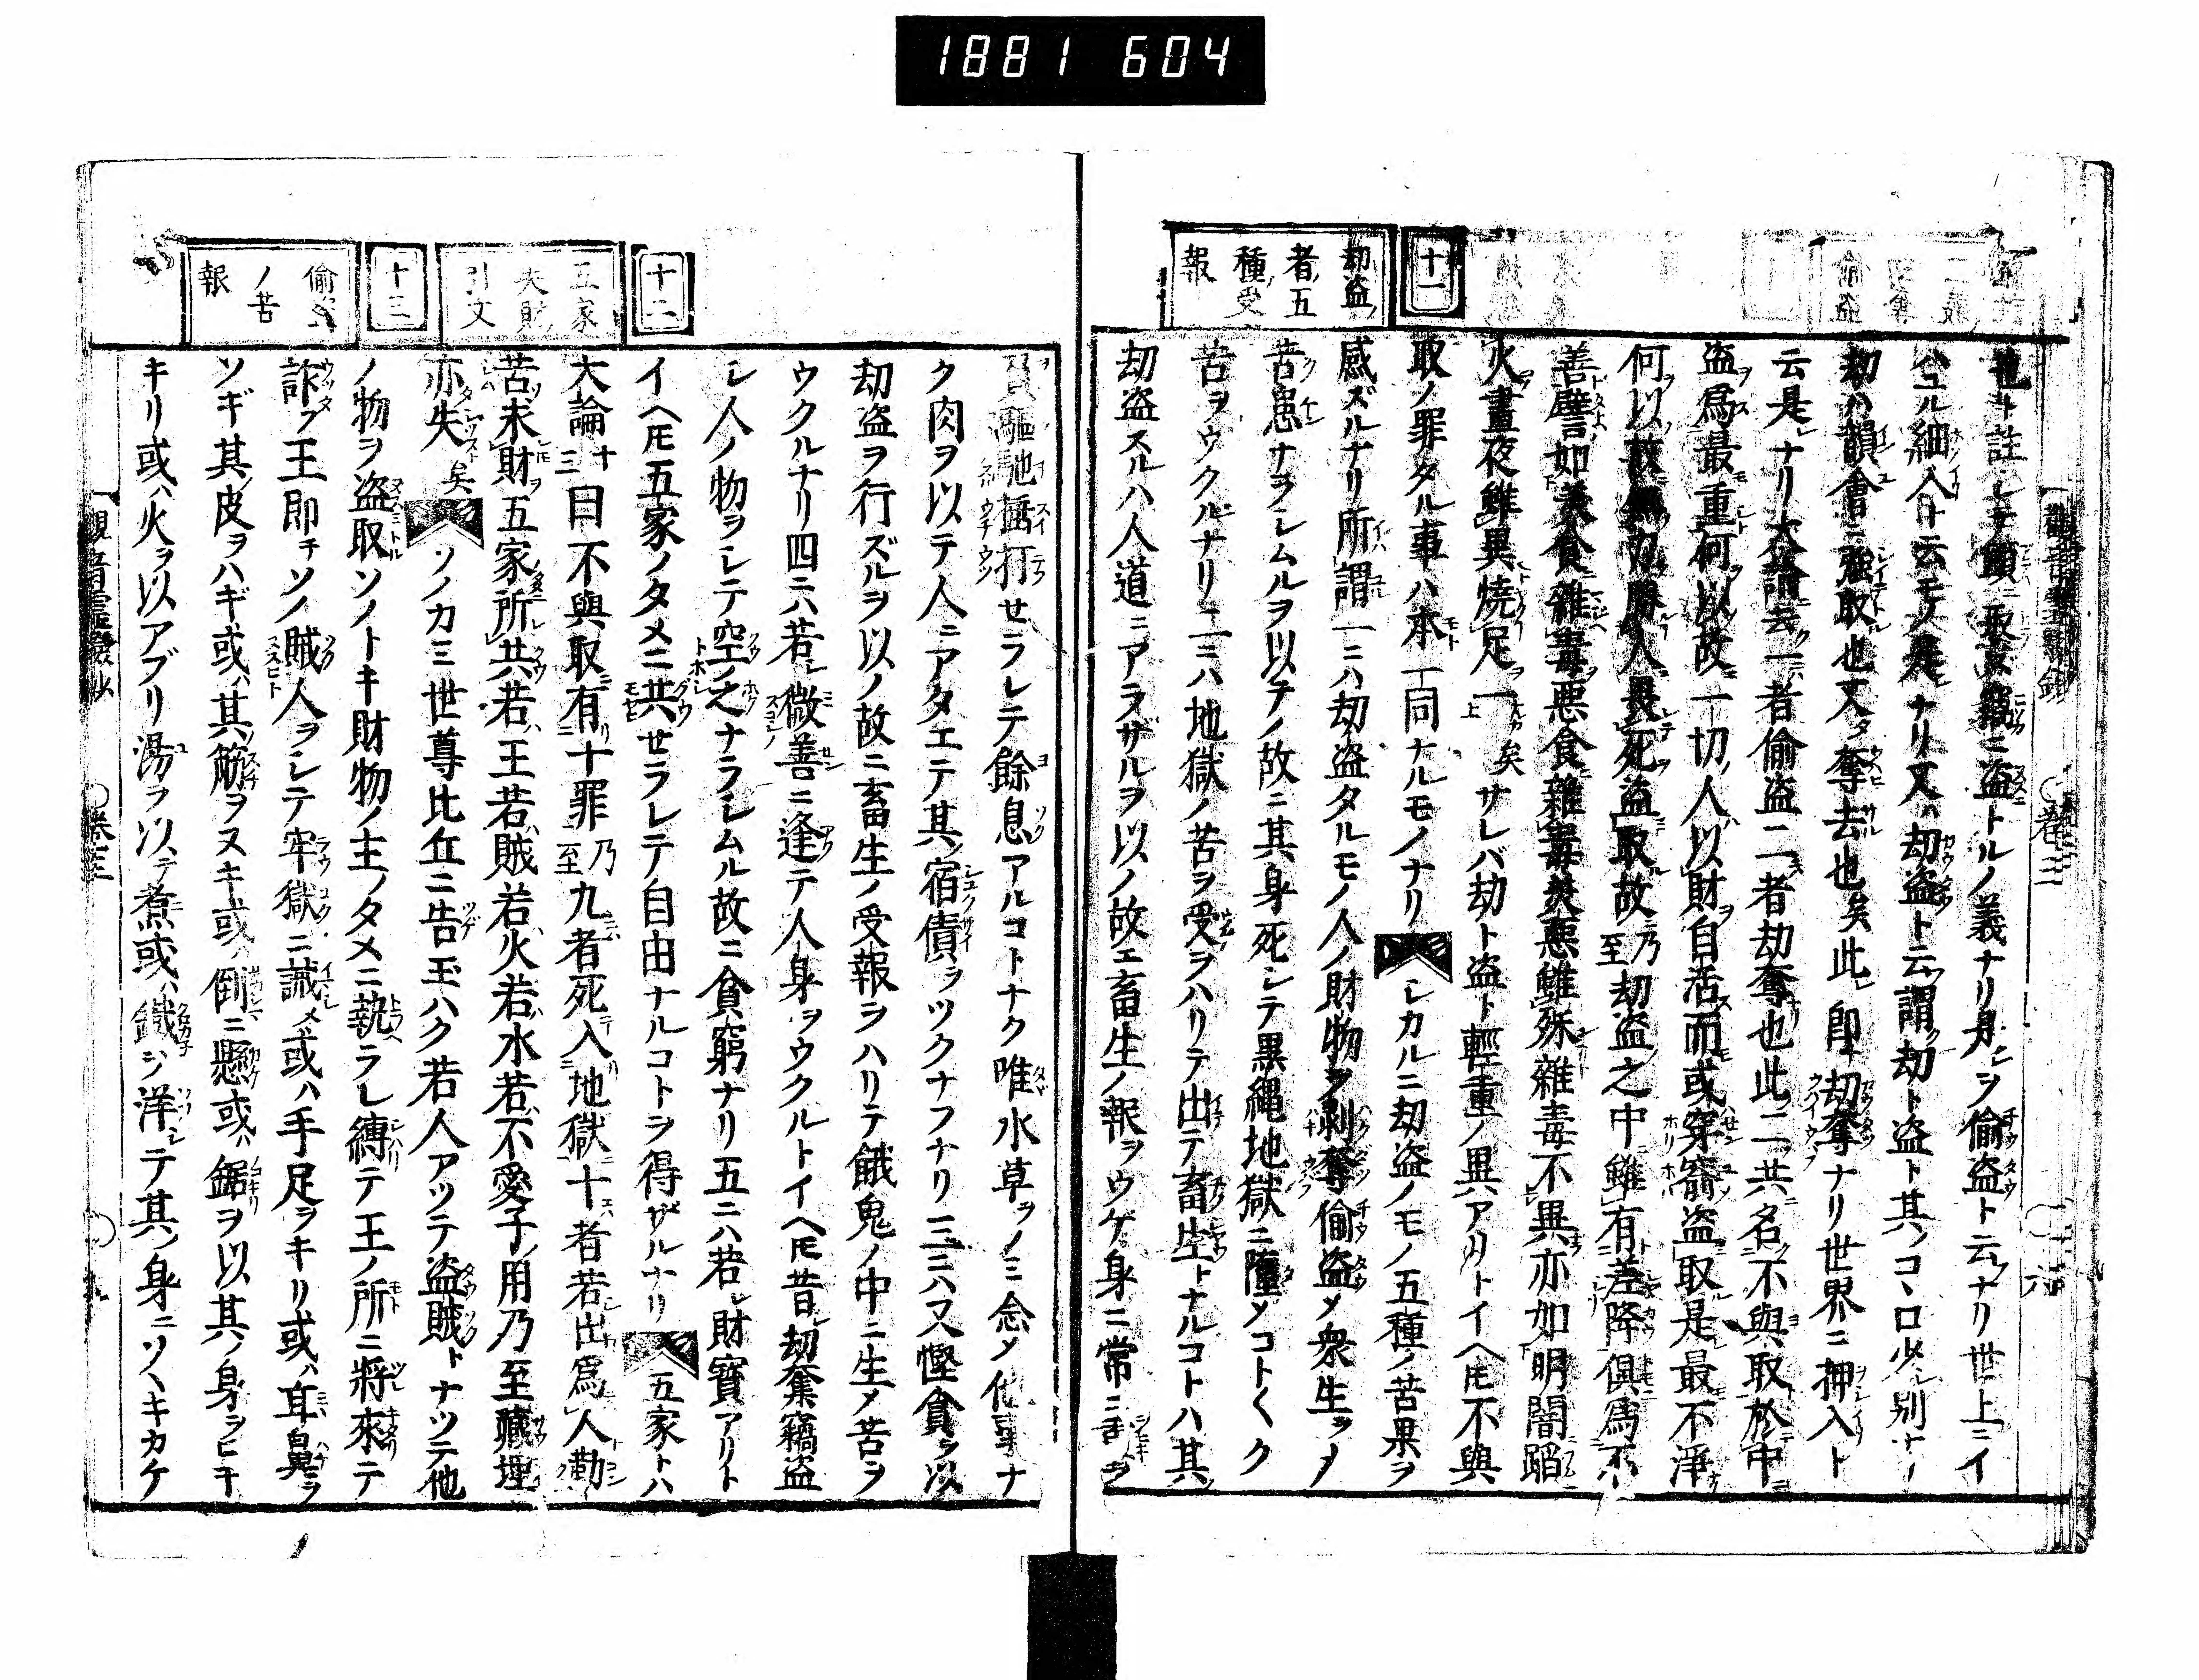 1881 604
十一
劫盗
者五
種受
報
也ト註シテ顯ニ取又竊ニ盗トルノ義ナリ是ヲ偸盗ト云ナリ世上ニイ
ハユル細人ト云モノ是ナリ又ハ劫盗ト云謂ク劫ト盗ト其ノコヽロ少シ別ナリ
劫ハ韻會ニ強取也又タ奪去也矣此レ即チ劫奪ナリ世界ニ押入ト
云是レナリ大論云一者偸盗二者劫奪也此二共名不與取於中
盗爲最重何以故一切人以財自活而或穿窬盗取是最不淨
何以故無力勝人畏死盗取故乃至劫盗之中雖有差降倶爲不
善譬如美食雜毒惡食雜毒美惡雖殊雜毒不異亦如明闇蹈
火晝夜雖異燒足一上矣サレバ劫ト盗ト輕重ノ異アリトイヘ𪜈不與
取ノ罪タル事ハ本ト一同ナルモノナリシカルニ劫盗ノモノ五種ノ苦果ヲ
感ズルナリ所謂一ニハ劫盗タルモノ人ノ財物ヲ剥奪偸盗メ衆生ヲメ
苦患ナヲシムルヲ以テノ故ニ其身死シテ黒縄地獄ニ墮メコトく ク
苦ヲウクルナリ二ニハ地獄ノ苦ヲ受ヲハリテ出テ畜生トナルコトハ其
劫盗スルハ人道ニアラザルヲ以ノ故ェ畜生ノ報ヲウゲ身ニ常ニ
十二
五家
失財
引文
十三
偸盗
ノ苦
報
驅馳捶打セラレテ餘息アルコトナク唯水草ヲノミ念メ他事ナ
ク肉ヲ以テ人ニアタエテ其宿債ヲツクナフナリ三ニハ又慳貪ヲ以
劫盗ヲ行ズルヲ以ノ故ニ畜生ノ受報ヲハリテ餓鬼ノ中ニ生メ苦ヲ
ウクルナリ四ニハ若シ微善ニ逢テ人身ヲウクルトイヘ𪜈昔シ劫奪竊盗
シ人ノ物ヲシテ空之ナラシムル故ニ貧窮ナリ五ニハ若シ財寳アリト
イヘ𪜈五家ノタメニ共セラレテ自由ナルコトヲ得ザルナリ五家トハ
大論十三曰不與取有十罪乃至九者死入地獄十者若出爲人勤
苦求財五家所共若王若賊若火若水若不愛子用乃至藏埋
亦失矣ソノカミ世尊比丘ニ告玉ハク若人アツテ盗賊トナツテ他
ノ物ヲ盗取ソノトキ財物ノ主ノタメニ執ラレ縛テ王ノ所ニ將來テ
訴フ王即チソノ賊人ヲシテ牢獄ニ誡メ或ハ手足ヲキリ或ハ耳鼻ヲ
ソギ其皮ヲハギ或ハ其筋ヲヌキ或ハ倒ニ懸或ハ鋸ヲ以其ノ身ヲヒキ
キリ或ハ火ヲ以アブリ湯ヲ以テ煮或ハ鐵ヲ洋テ其ノ身ニソヽキカケ
卷三